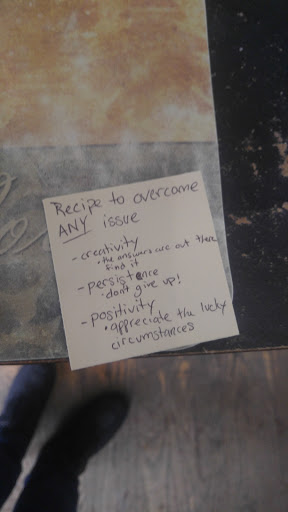 Recipe to overcome
ANY issue
- creativity
• the answers are out there
find it
- persistence
• don't give up!
- positivity
• appreciate the lucky
circumstances